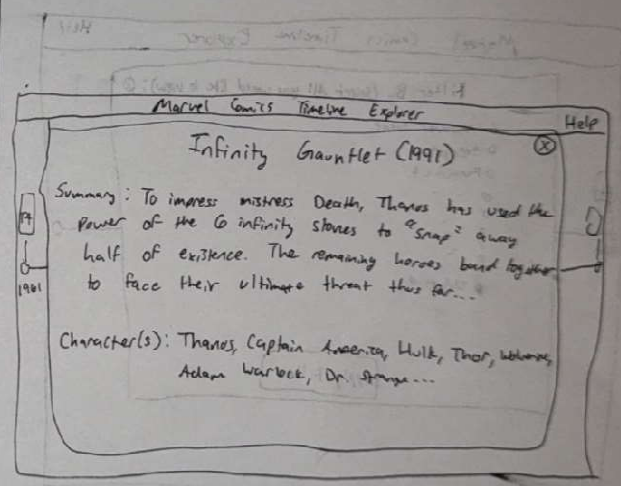 Marvel Comics Timeline Explorer
Help
Infinity Gauntlet (1991)
Summary: To impress mistress Death, Thanos has used the
Power of the 6 infinity stones to "snap" away
half of existence. The remaining heroes band together
to face their ultimate threat thus far...
1981
Character(s): Thanos, Captain America, Hulk, Thor, Wolverine,
Adam Warlock, Dr. Strange...